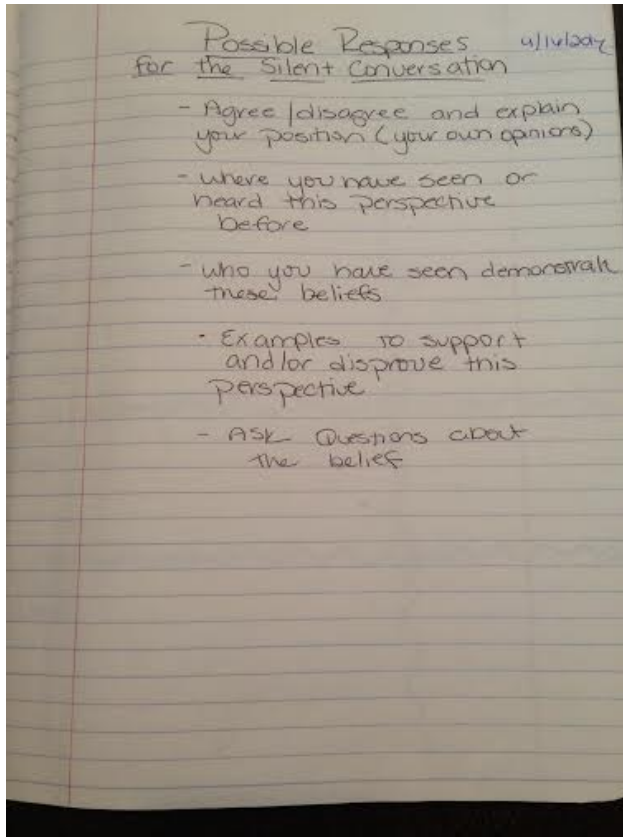 Possible Responses
for the Silent Conversation
- Agree/disagree and explain
your position (your own opinions)
- where you have seen or
heard this perspective
before
- who you have seen demonstrate
these beliefs
- Examples to support
and/or disprove this
perspective
- Ask Questions about
the belief